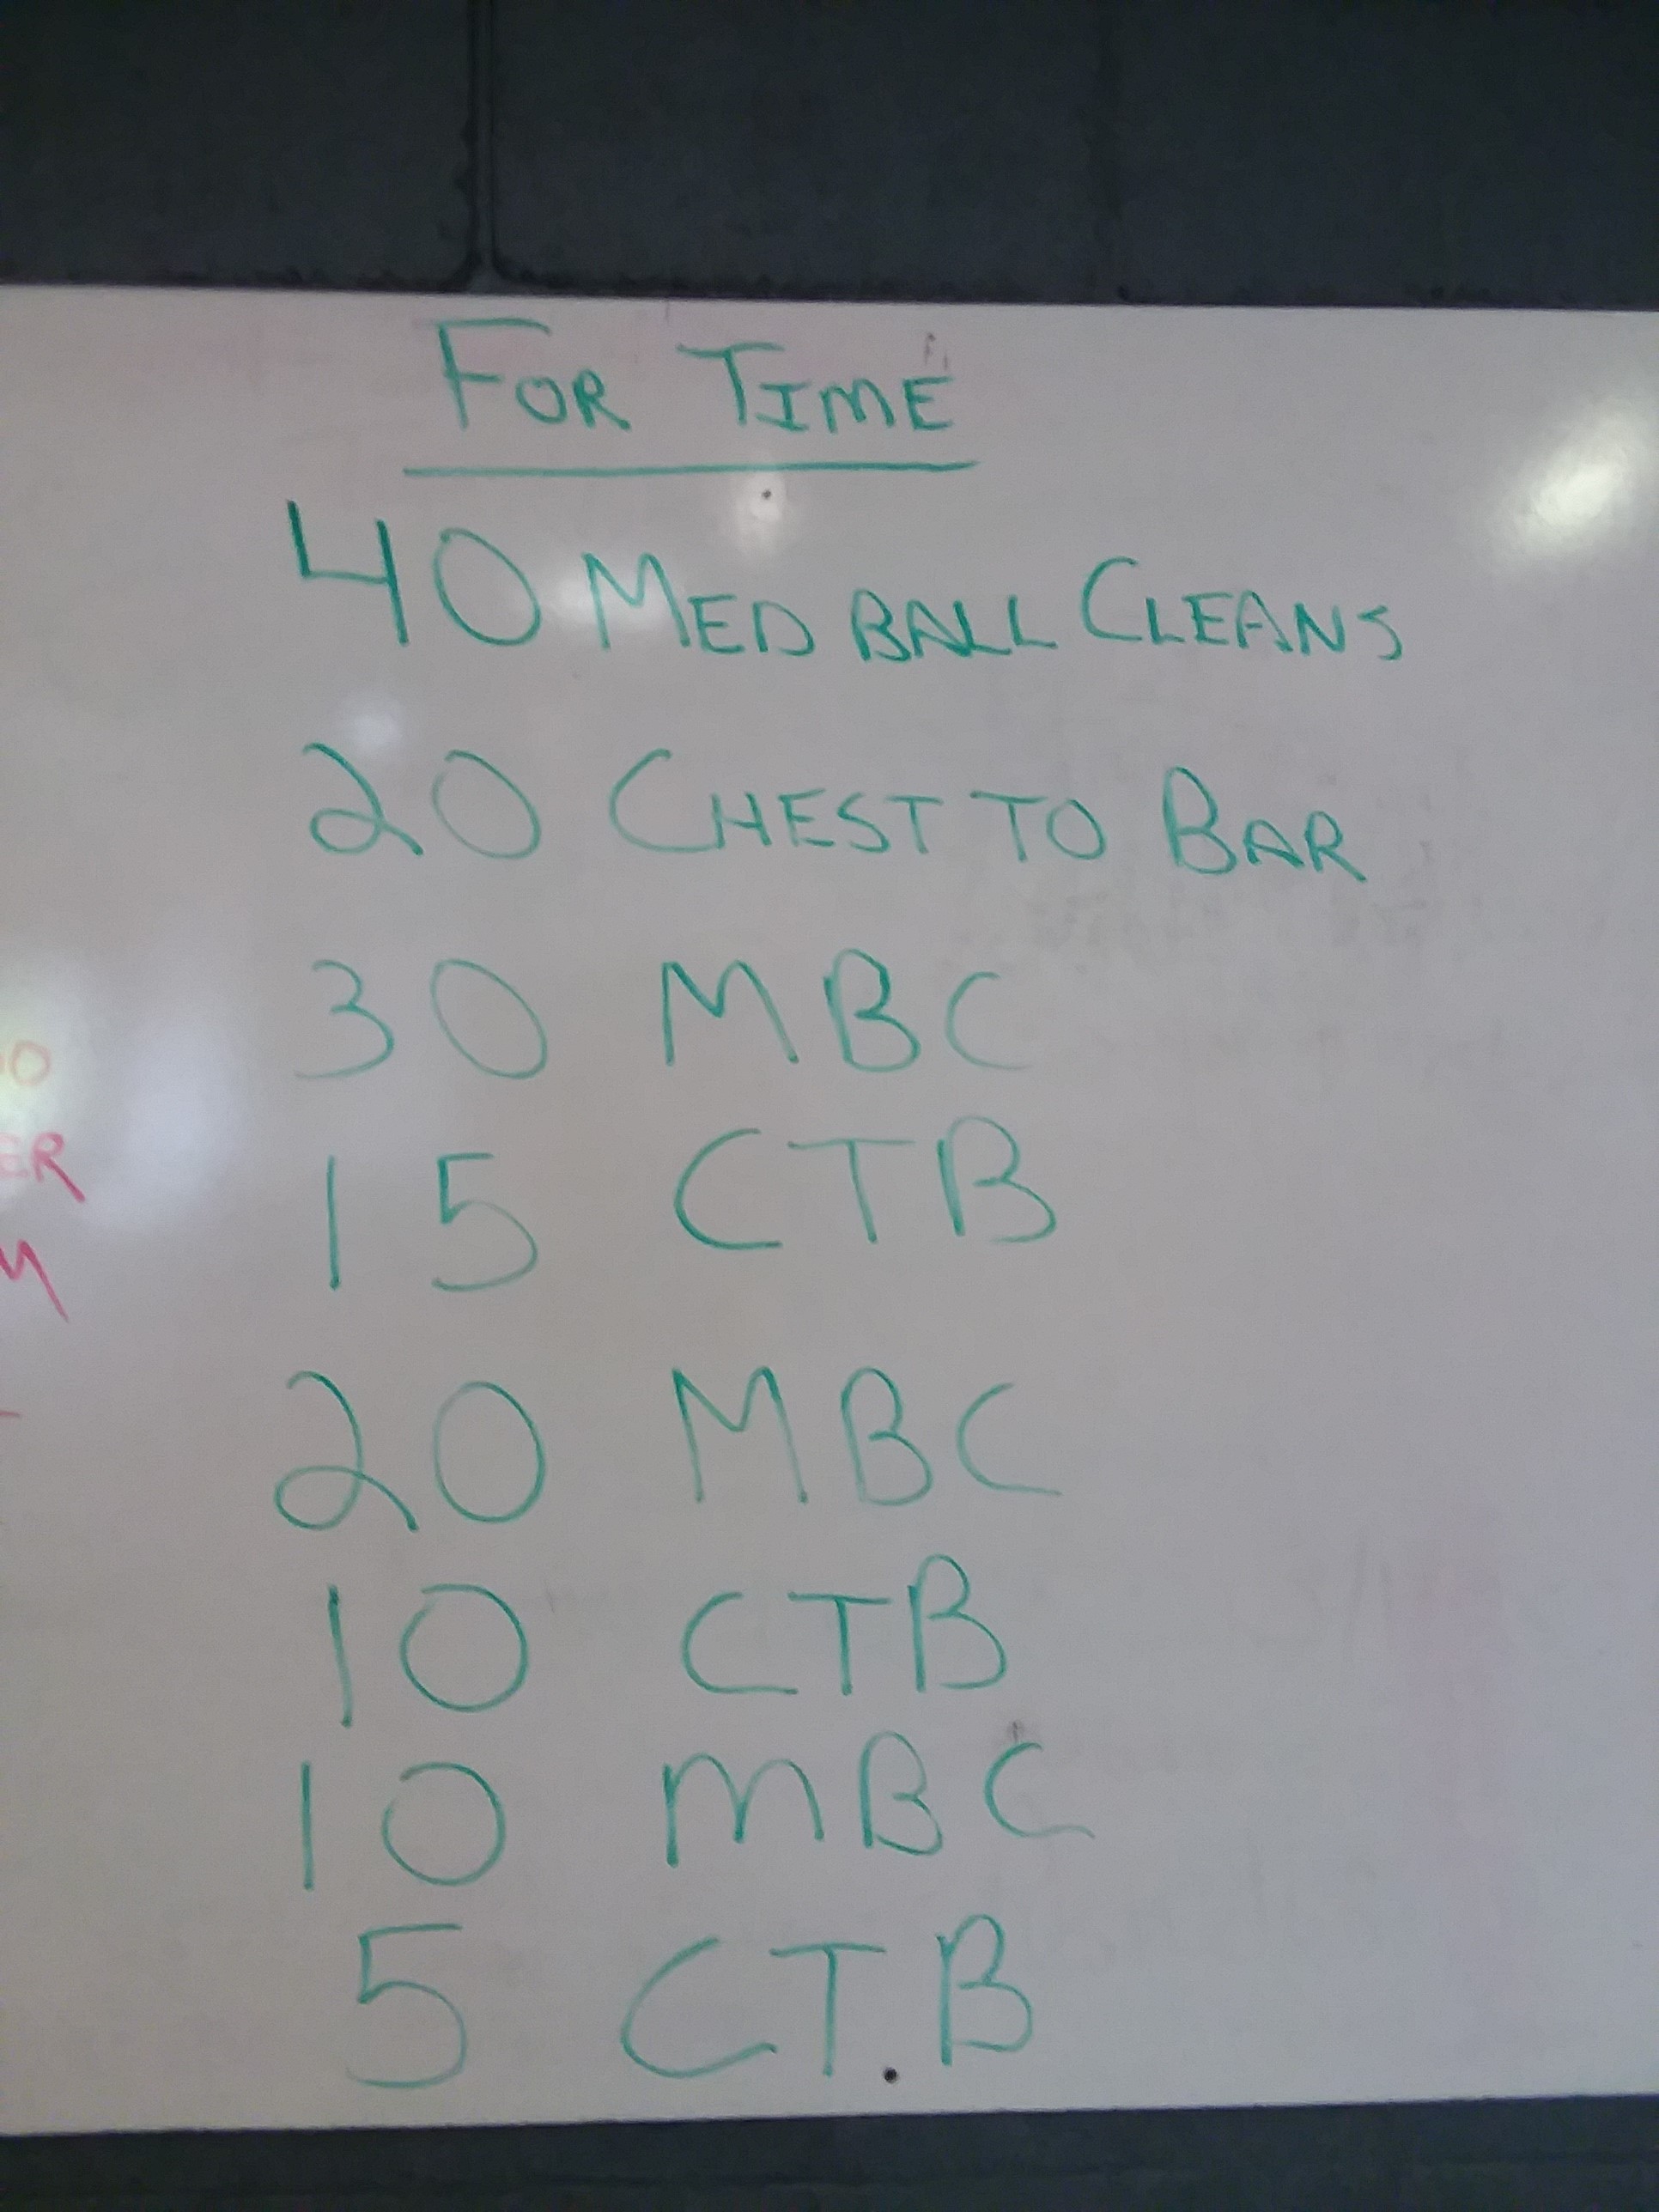 FOR TIME
40 MED BALL CLEANS
20 CHEST TO BAR
30 MBC
15 CTB
20 MBC
10 CTB
10 MBC
5 CTB
ER